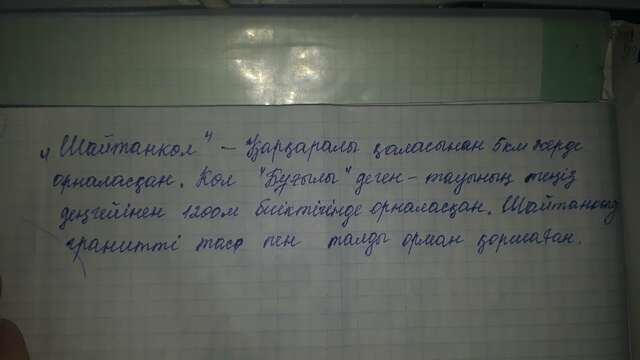 „Шайтанкол" – Қарқаралы қаласынан 5км жерде
орналасқан. Кол "Бұғылы" деген – тауының теңіз
деңгейінен 1200м биіктігінде орналасқан. Шайтанколд
гранитті тас пен талды орман қоршаған.